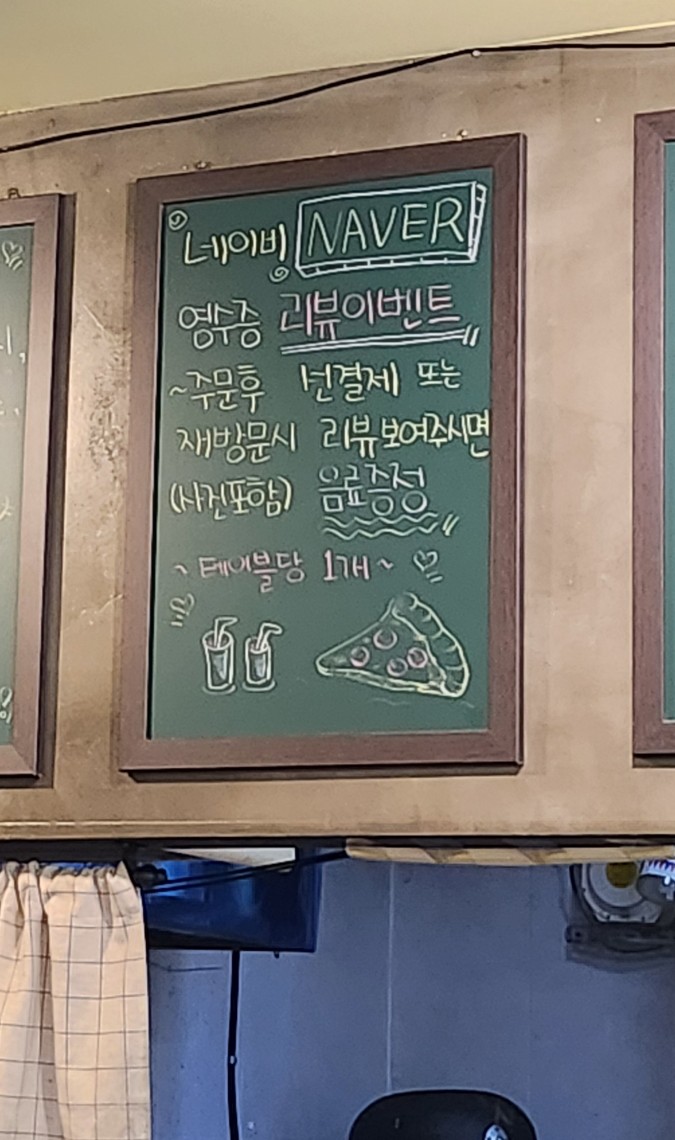 네이버 NAVER
영수증 리뷰이벤트
~주문후 선결제 또는
재방문시 리뷰보여주시면
(사진포함) 음료증정
~테이블당 1개~